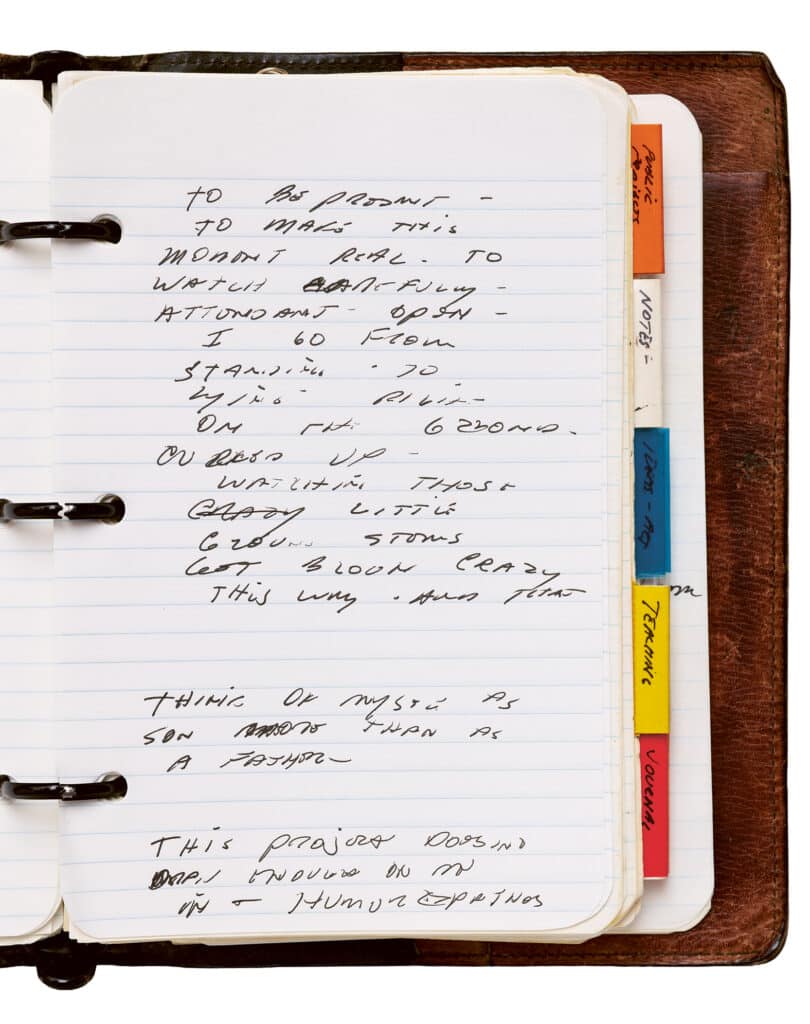 TO BE PRESENT -
TO MAKE THIS
MOMENT REAL. TO
WATCH CAREFULLY -
ATTENDANT - OPEN -
I GO FROM
STANDING - TO
LYING -
ON THE GROUND.
CURLED UP -
WATCHING THOSE
CRAZY LITTLE
GROUND STORMS
GET BLOWN CRAZY
THIS WAY. AND THAT
THINK OF MYSELF AS
SON MORE THAN AS
A FATHER -
THIS PROJECT DOESN'T
ENOUGH ON
HUMOR
PUBLIC
PROJECTS
NOTES -
IDEAS -
TEACHING
JOURNAL